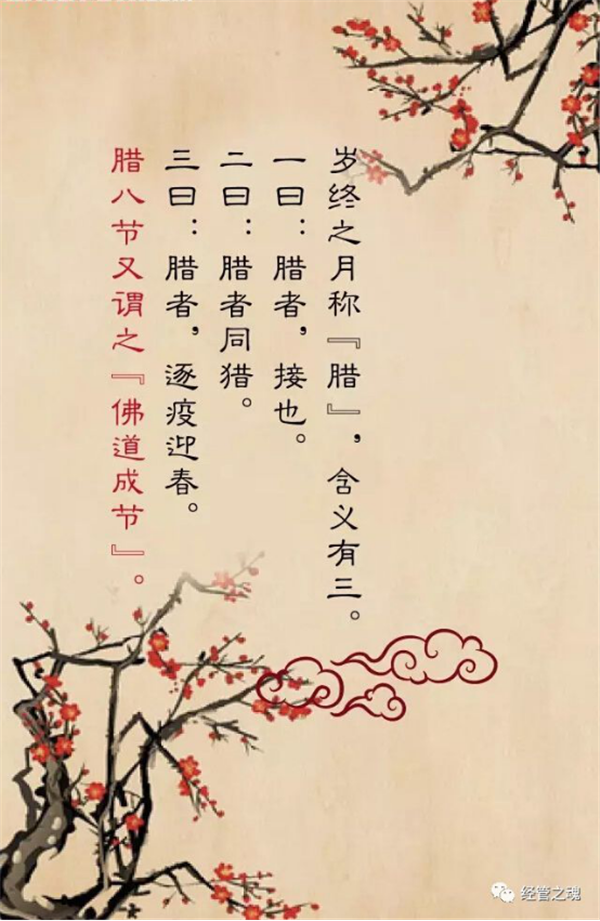 岁终之月称『腊』，含义有三。
一曰：腊者，接也。
二曰：腊者同猎。
三曰：腊者，逐疫迎春。
腊八节又谓之『佛道成节』。
经管之魂